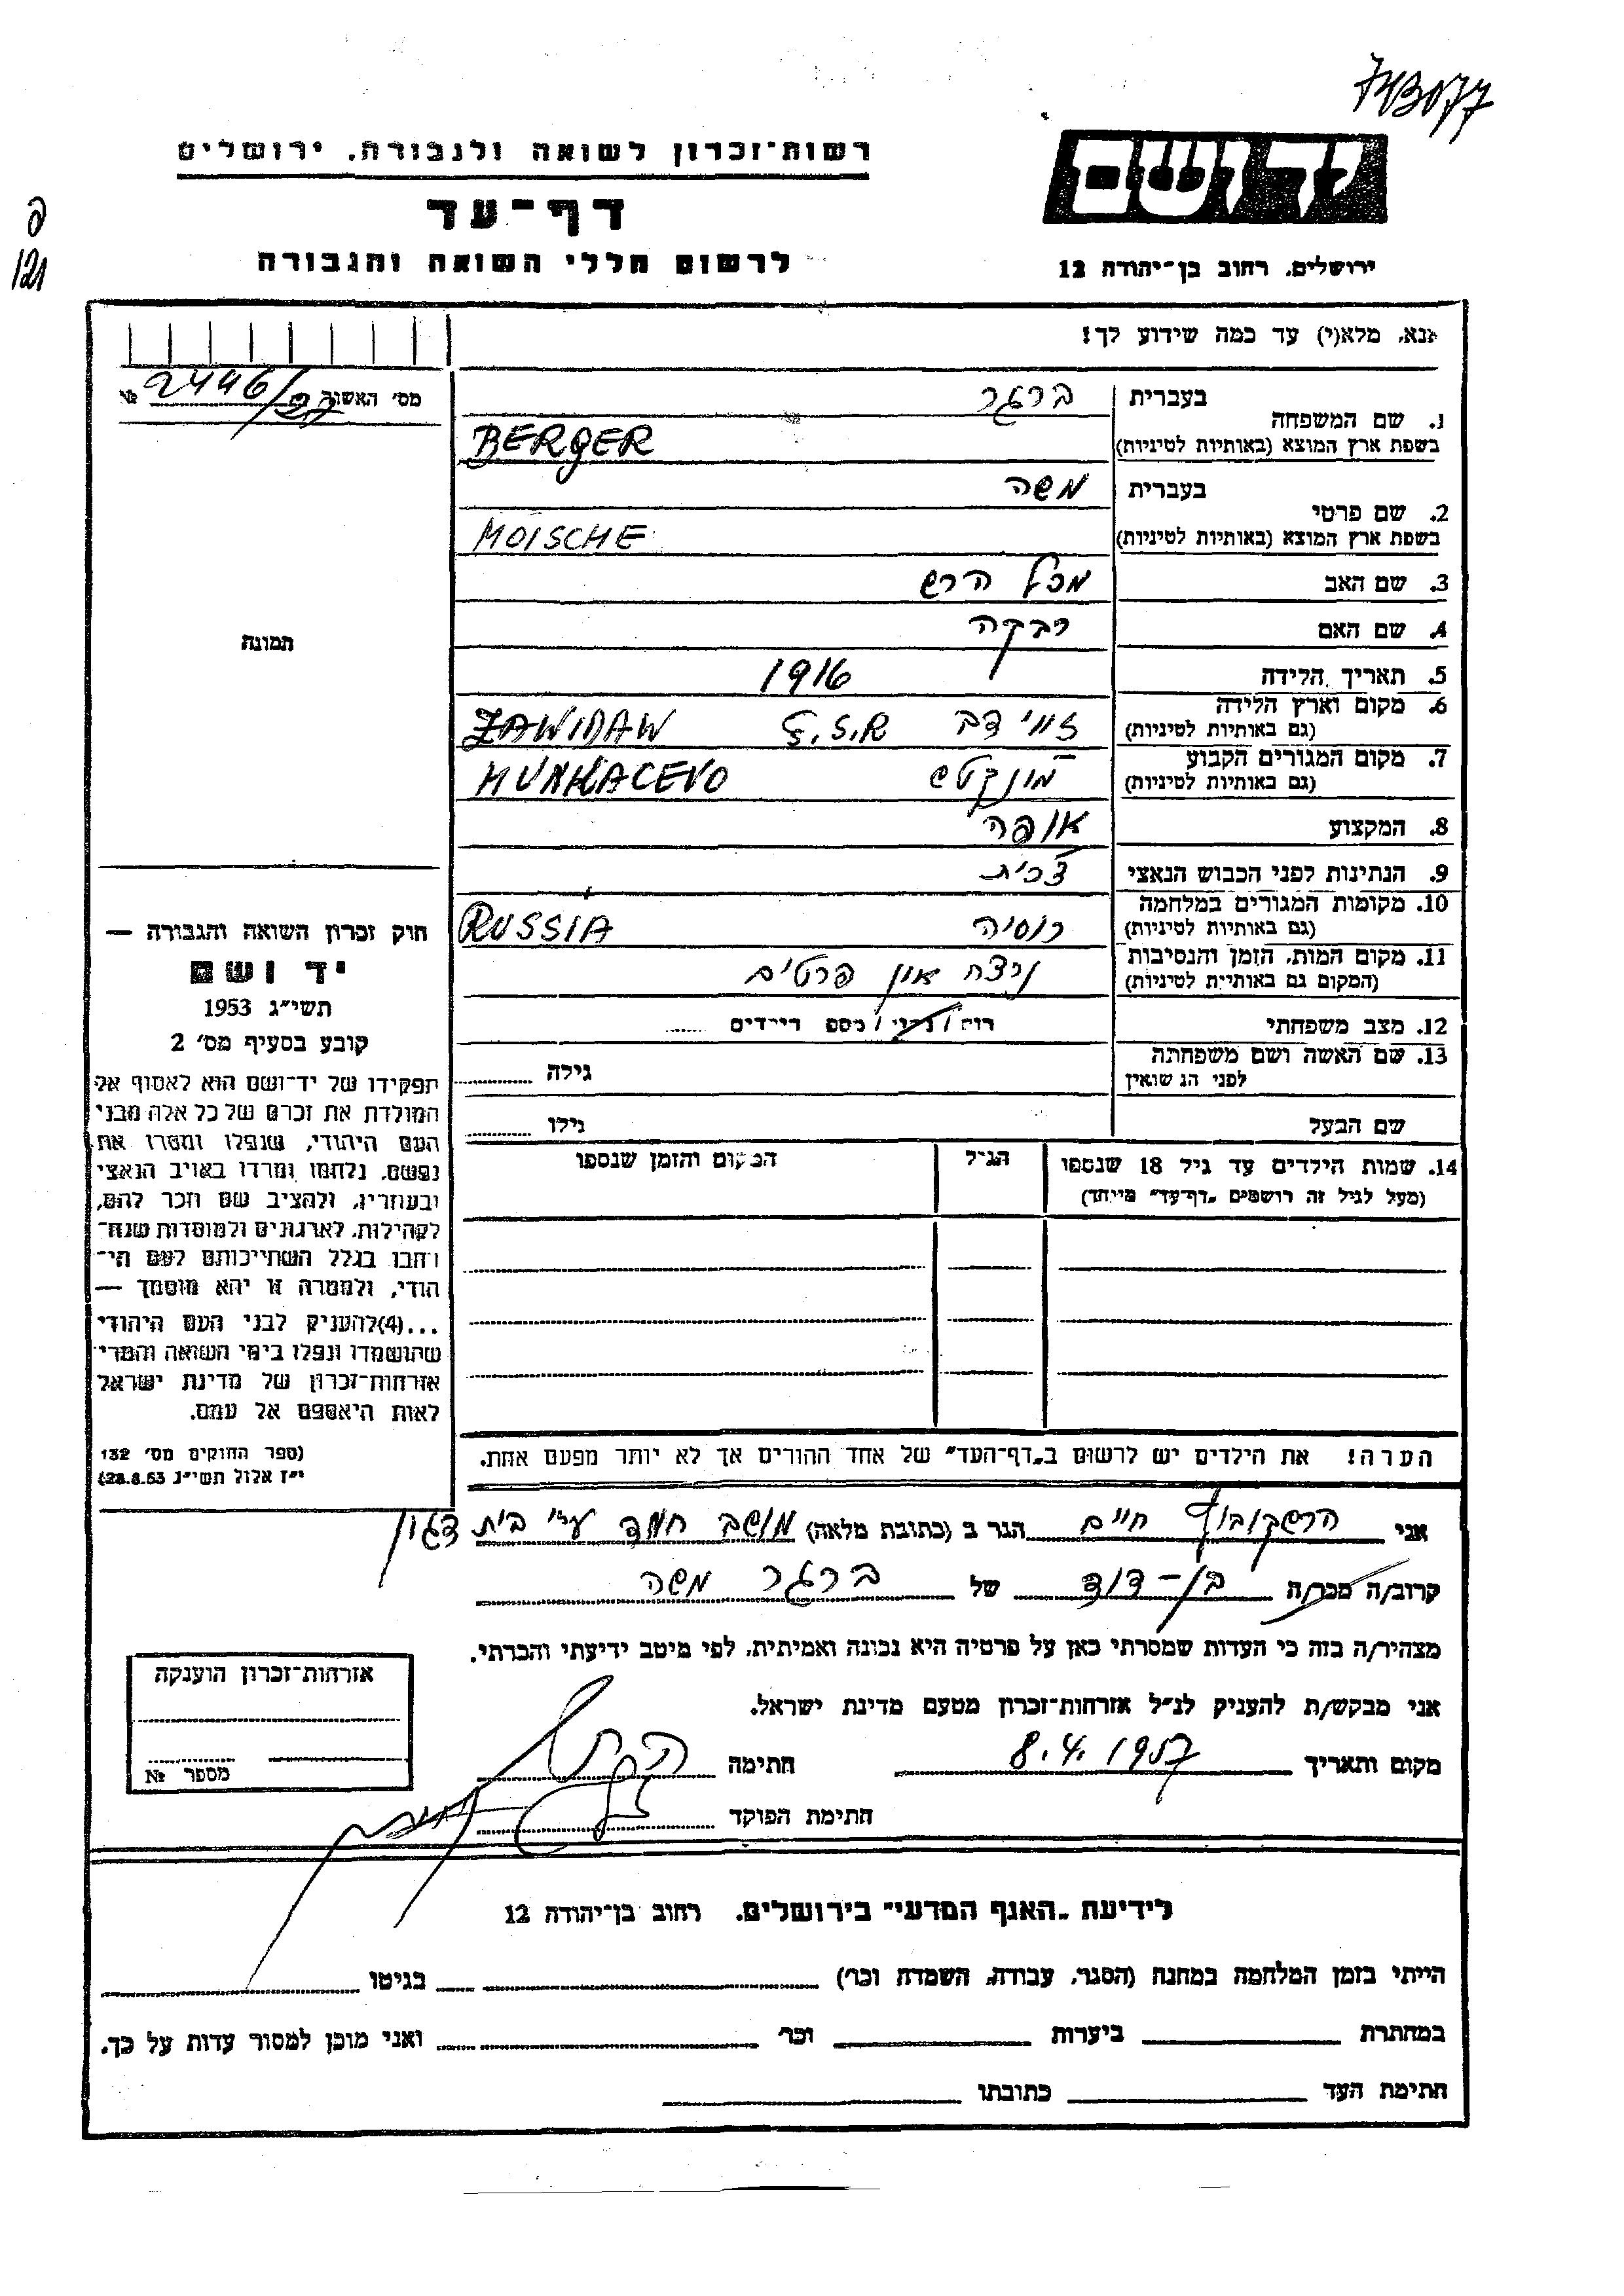 743077
רשות־זכרון לשואה ולגבורה, ירושלים
דף־עד
לרשום חללי השואה והגבורה
יד ושם
ירושלים, רחוב בן־יהודה 12
121
אנא, מלא(י) עד כמה שידוע לך!
מס׳ האשור 2446/27 №
תמונה
1. שם המשפחה
בעברית ברגר
בשפת ארץ המוצא (באותיות לטיניות) BERGER
2. שם פרטי
בעברית משה
בשפת ארץ המוצא (באותיות לטיניות) MOISCHE
3. שם האב מכל הרש
4. שם האם רבקה
5. תאריך הלידה 1916
6. מקום וארץ הלידה
(גם באותיות לטיניות) זווידב Č.S.R ZAWIDAW
7. מקום המגורים הקבוע
(גם באותיות לטיניות) מונקטש MUNKACEVO
8. המקצוע אופה
9. הנתינות לפני הכבוש הנאצי צכית
10. מקומות המגורים במלחמה
(גם באותיות לטיניות) רוסיה RUSSIA
11. מקום המות, הזמן והנסיבות
(המקום גם באותיית לטיניות) נרצח אין פרטים
12. מצב משפחתי רוק/נשוי/מספר הילדים
13. שם האשה ושם משפחתה
לפני הנשואין גילה
שם הבעל גילו
14. שמות הילדים עד גיל 18 שנספו
(מעל לגיל זה רושמים „דף־עד״ מיוחד)
הגיל
המקום והזמן שנספו
הערה! את הילדים יש לרשום ב„דף־העד״ של אחד ההורים אך לא יותר מפעם אחת.
חוק זכרון השואה והגבורה —
יד ושם
תשי״ג 1953
קובע בסעיף מס׳ 2
תפקידו של יד־ושם הוא לאסוף אל
המולדת את זכרם של כל אלה מבני
העם היהודי, שנפלו ומסרו את
נפשם, נלחמו ומרדו באויב הנאצי
ובעוזריו, ולהציב שם וזכר להם,
לקהילות, לארגונים ולמוסדות שנח־
רבו בגלל השתייכותם לעם הי־
הודי, ולמטרה זו יהא מוסמך —
...(4) להעניק לבני העם היהודי
שהושמדו ונפלו בימי השואה והמרי
אזרחות־זכרון של מדינת ישראל
לאות היאספם אל עמם.
(ספר החוקים מס׳ 132
י״ז אלול תשי״ג 28.8.53)
אני הרשקוביץ חיים הגר ב (כתובת מלאה) מושב חמד ע״י בית דגון
קרוב/ה מכר/ה בן-דוד של ברגר משה
מצהיר/ה בזה כי העדות שמסרתי כאן על פרטיה היא נכונה ואמיתית, לפי מיטב ידיעתי והכרתי.
אני מבקש/ת להעניק לנ״ל אזרחות־זכרון מטעם מדינת ישראל.
מקום ותאריך 8.4.1957 חתימה
חתימת הפוקד
אזרחות־זכרון הוענקה
מספר №
לידיעת „האגף המדעי״ בירושלים, רחוב בן־יהודה 12
הייתי בזמן המלחמה במחנה (הסגר, עבודה, השמדה וכר׳) בגיטו
במחתרת ביערות וכר׳ ואני מוכן למסור עדות על כך.
חתימת העד כתובתו